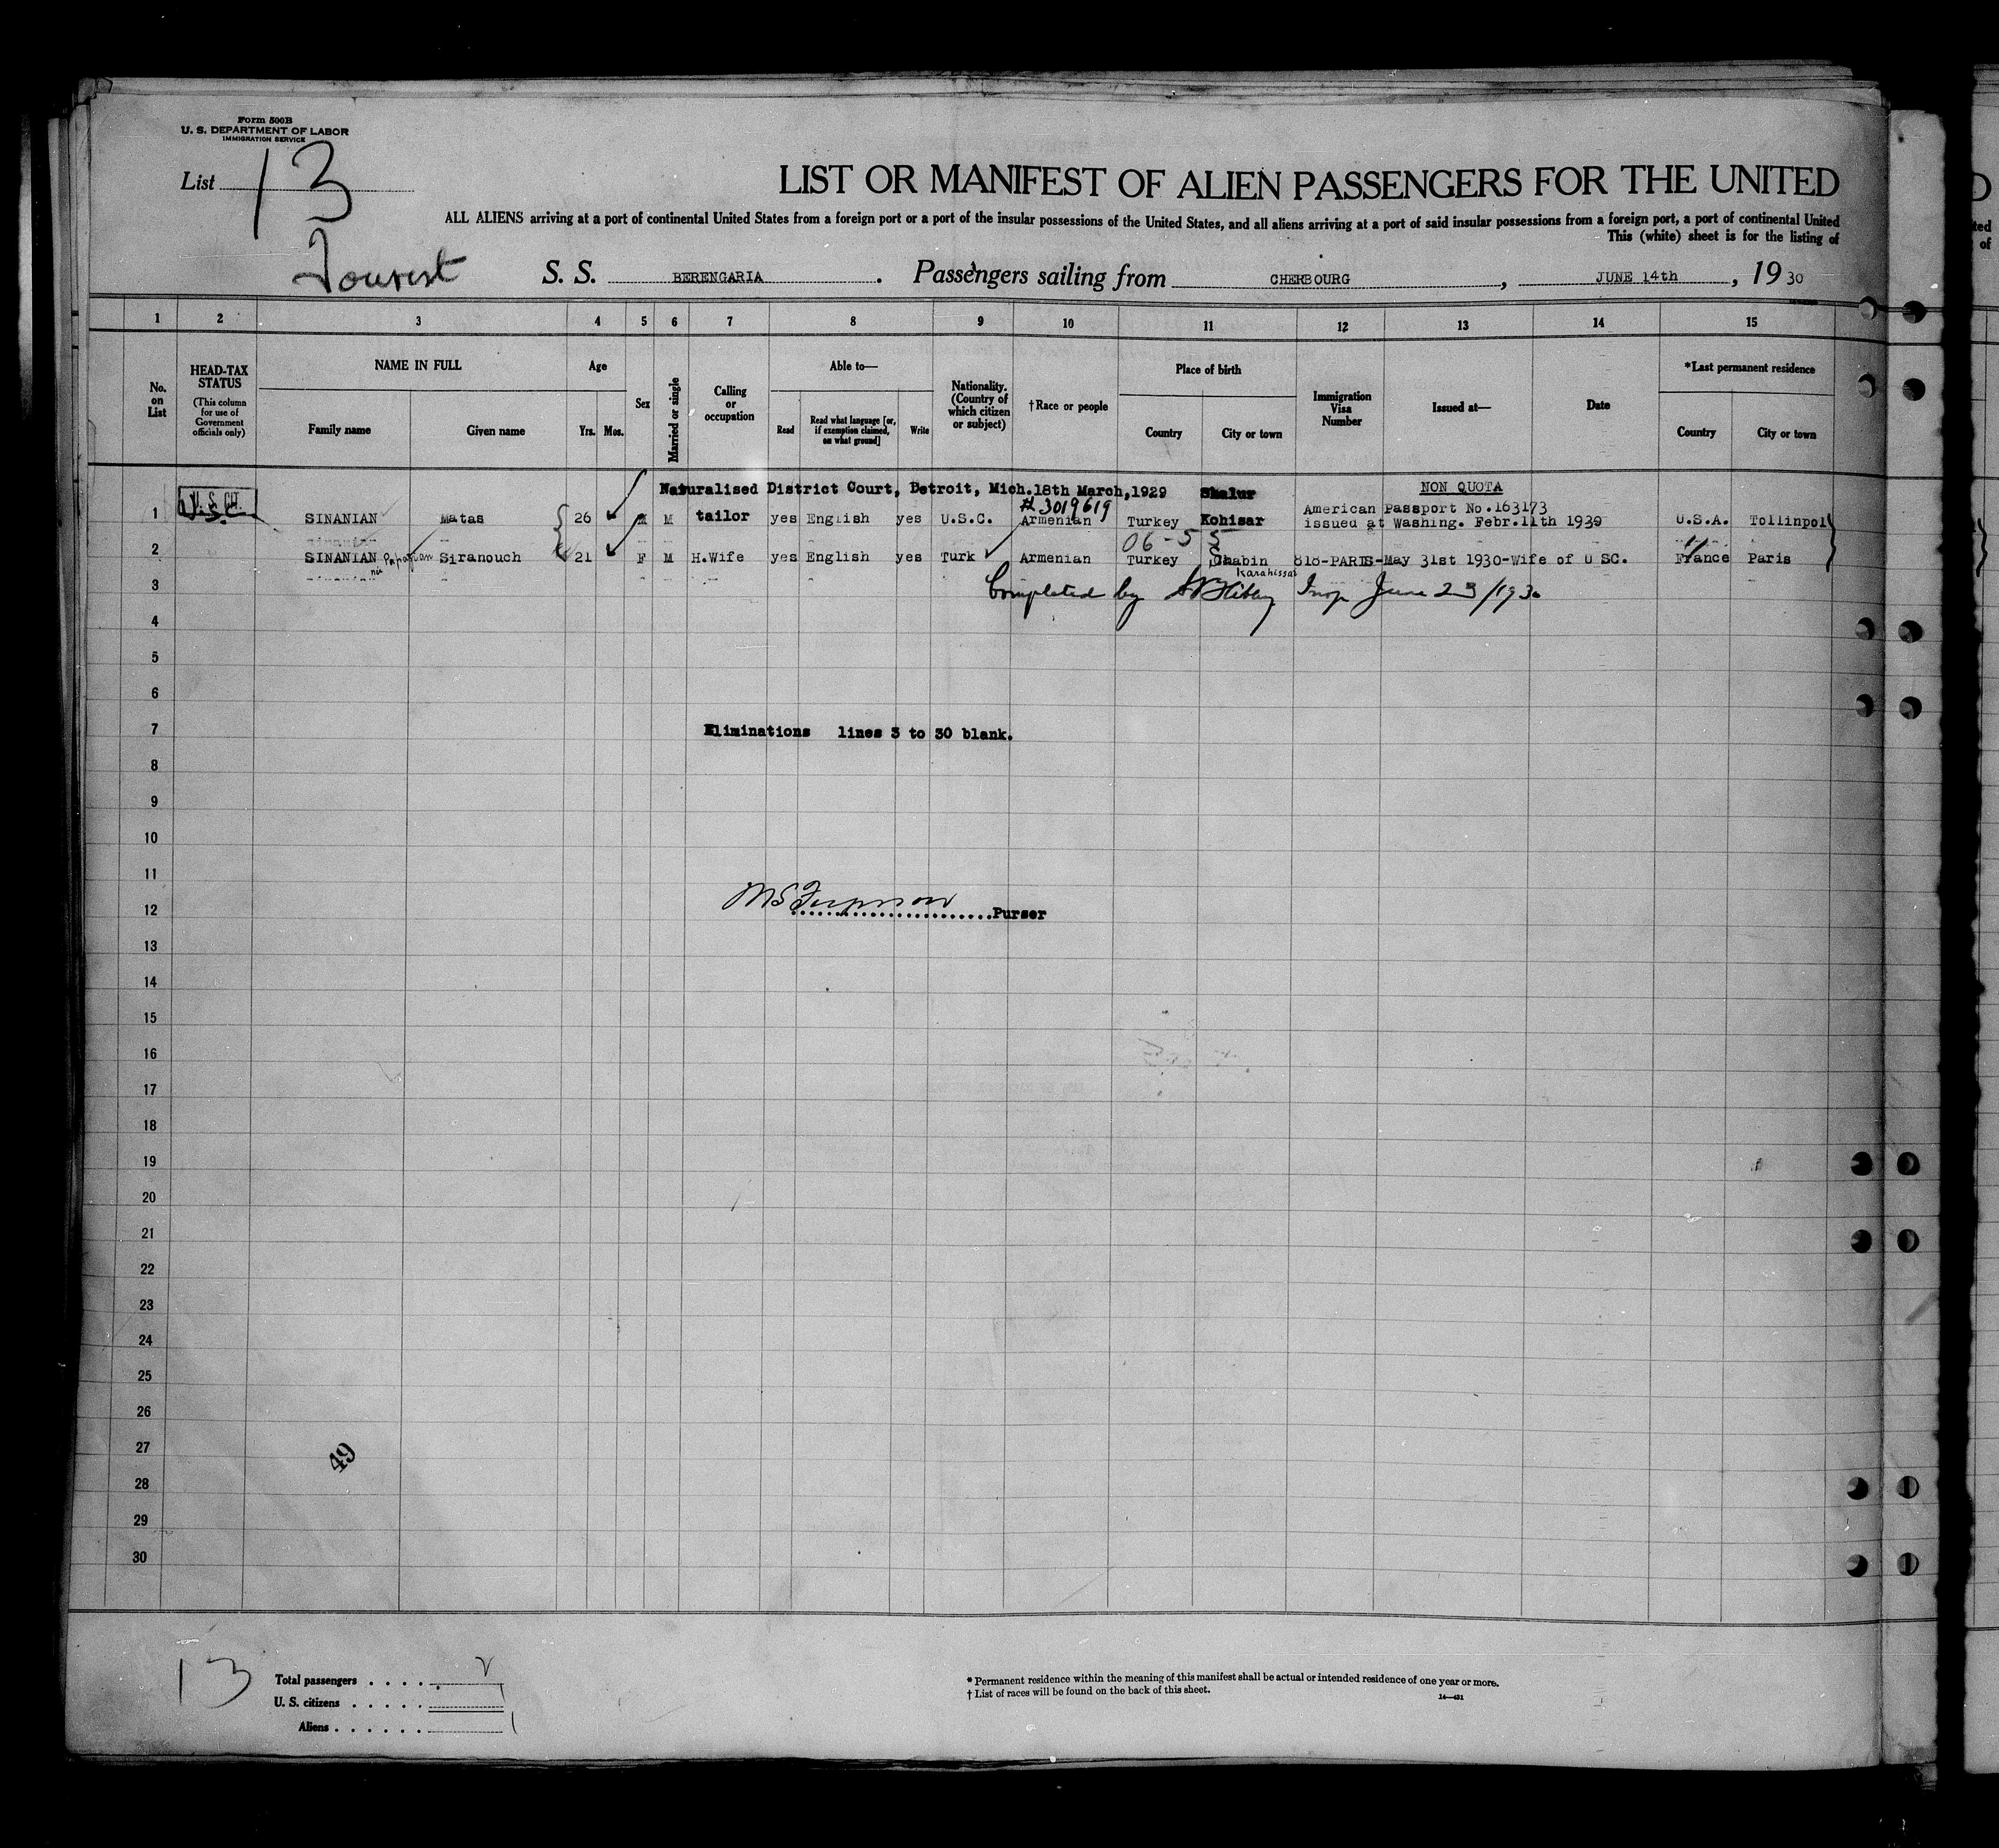 Form 500B
U. S. DEPARTMENT OF LABOR
IMMIGRATION SERVICE
List 13
LIST OR MANIFEST OF ALIEN PASSENGERS FOR THE UNITED
ALL ALIENS arriving at a port of continental United States from a foreign port or a port of the insular possessions of the United States, and all aliens arriving at a port of said insular possessions from a foreign port, a port of continental United
This (white) sheet is for the listing of
Tourist S. S. BERENGARIA. Passengers sailing from CHERBOURG, JUNE 14th, 1930
1 2 3 4 5 6 7 8 9 10 11 12 13 14 15
No. on List
HEAD-TAX STATUS (This column for use of Government officials only)
NAME IN FULL
Family name Given name
Age
Yrs. Mos.
Sex
Married or single
Calling or occupation
Able to—
Read Read what language [or, if exemption claimed, on what ground] Write
Nationality. (Country of which citizen or subject)
†Race or people
Place of birth
Country City or town
Immigration Visa Number
Issued at—
Date
*Last permanent residence
Country City or town
Naturalised District Court, Detroit, Mich. 18th March, 1929 Shalur NON QUOTA
U. S. CIT. #3019619 American Passport No.163173
1 U.S.C. SINANIAN Matas 26 M M tailor yes English yes U.S.C. Armenian Turkey Kohisar issued at Washing. Febr.11th 1930 U.S.A. Tollinpol
06-55
2 SINANIAN née Papazian Siranouch 21 F M H.Wife yes English yes Turk Armenian Turkey Chabin 818-PARIS-May 31st 1930-Wife of U SC. France Paris
Karahissar
3 Completed by Insp June 23/1930
4
5
6
7 Eliminations lines 3 to 30 blank.
8
9
10
11
12 Purser
13
14
15
16
17
18
19
20
21
22
23
24
25
26
27
49
28
29
30
13
Total passengers . . . . .
U. S. citizens . . . . . 1
Aliens . . . . . . 1
* Permanent residence within the meaning of this manifest shall be actual or intended residence of one year or more.
† List of races will be found on the back of this sheet.
14—431